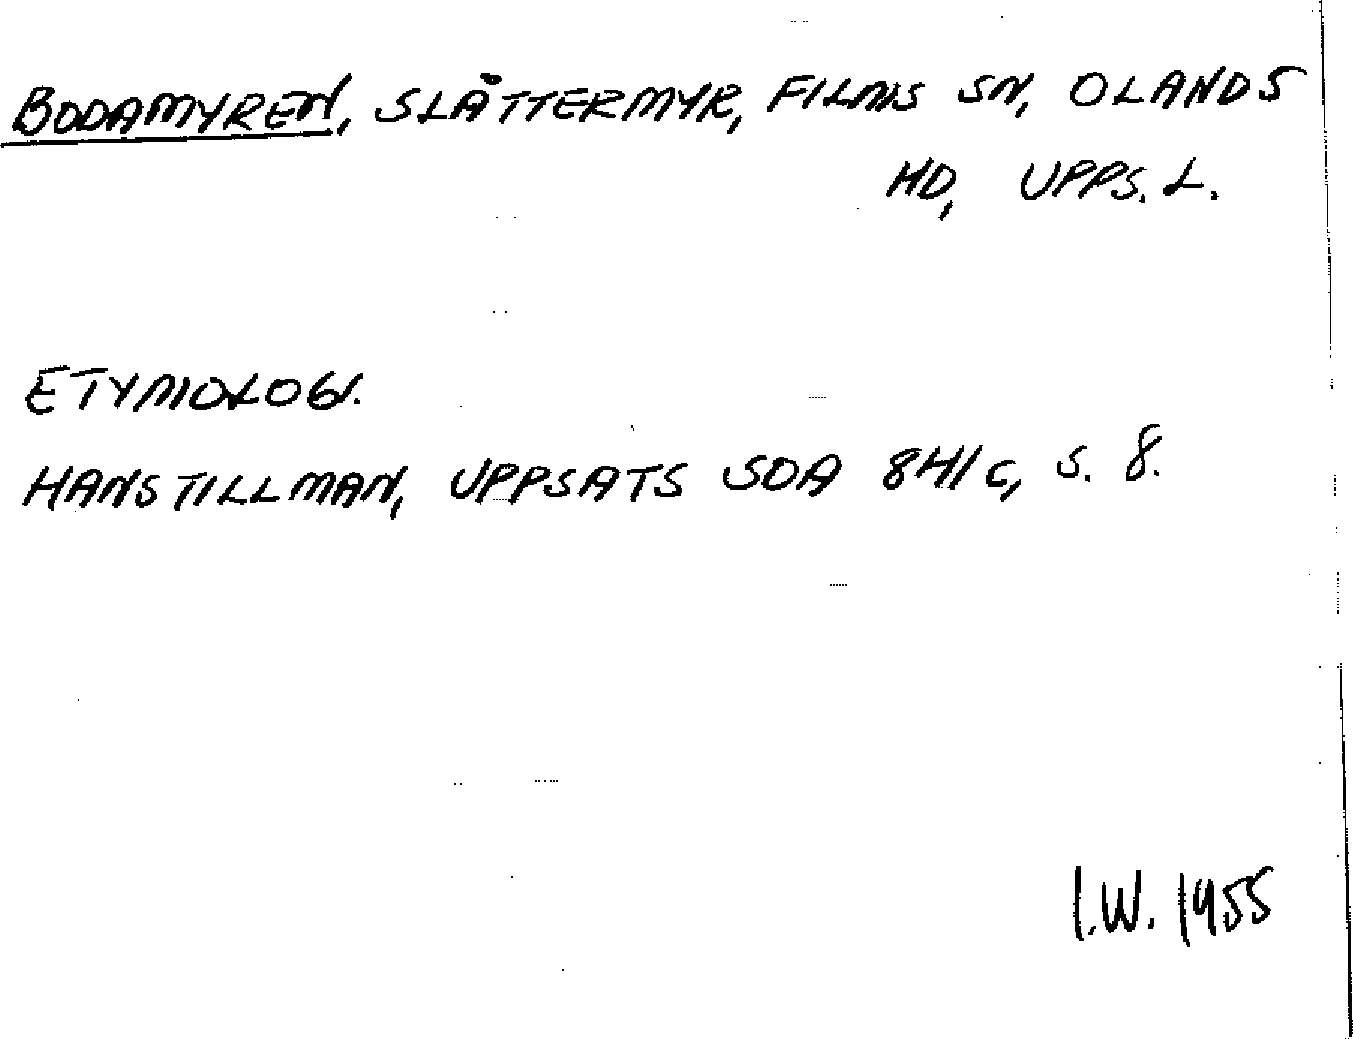 BODAMYREN, SLÅTTERMYR, FILMS SN, OLANDS
HD, UPPS. L.
ETYMOLOGI.
HANS TILLMAN, UPPSATS SOA 841 C, S. 8.
I.W. 1955